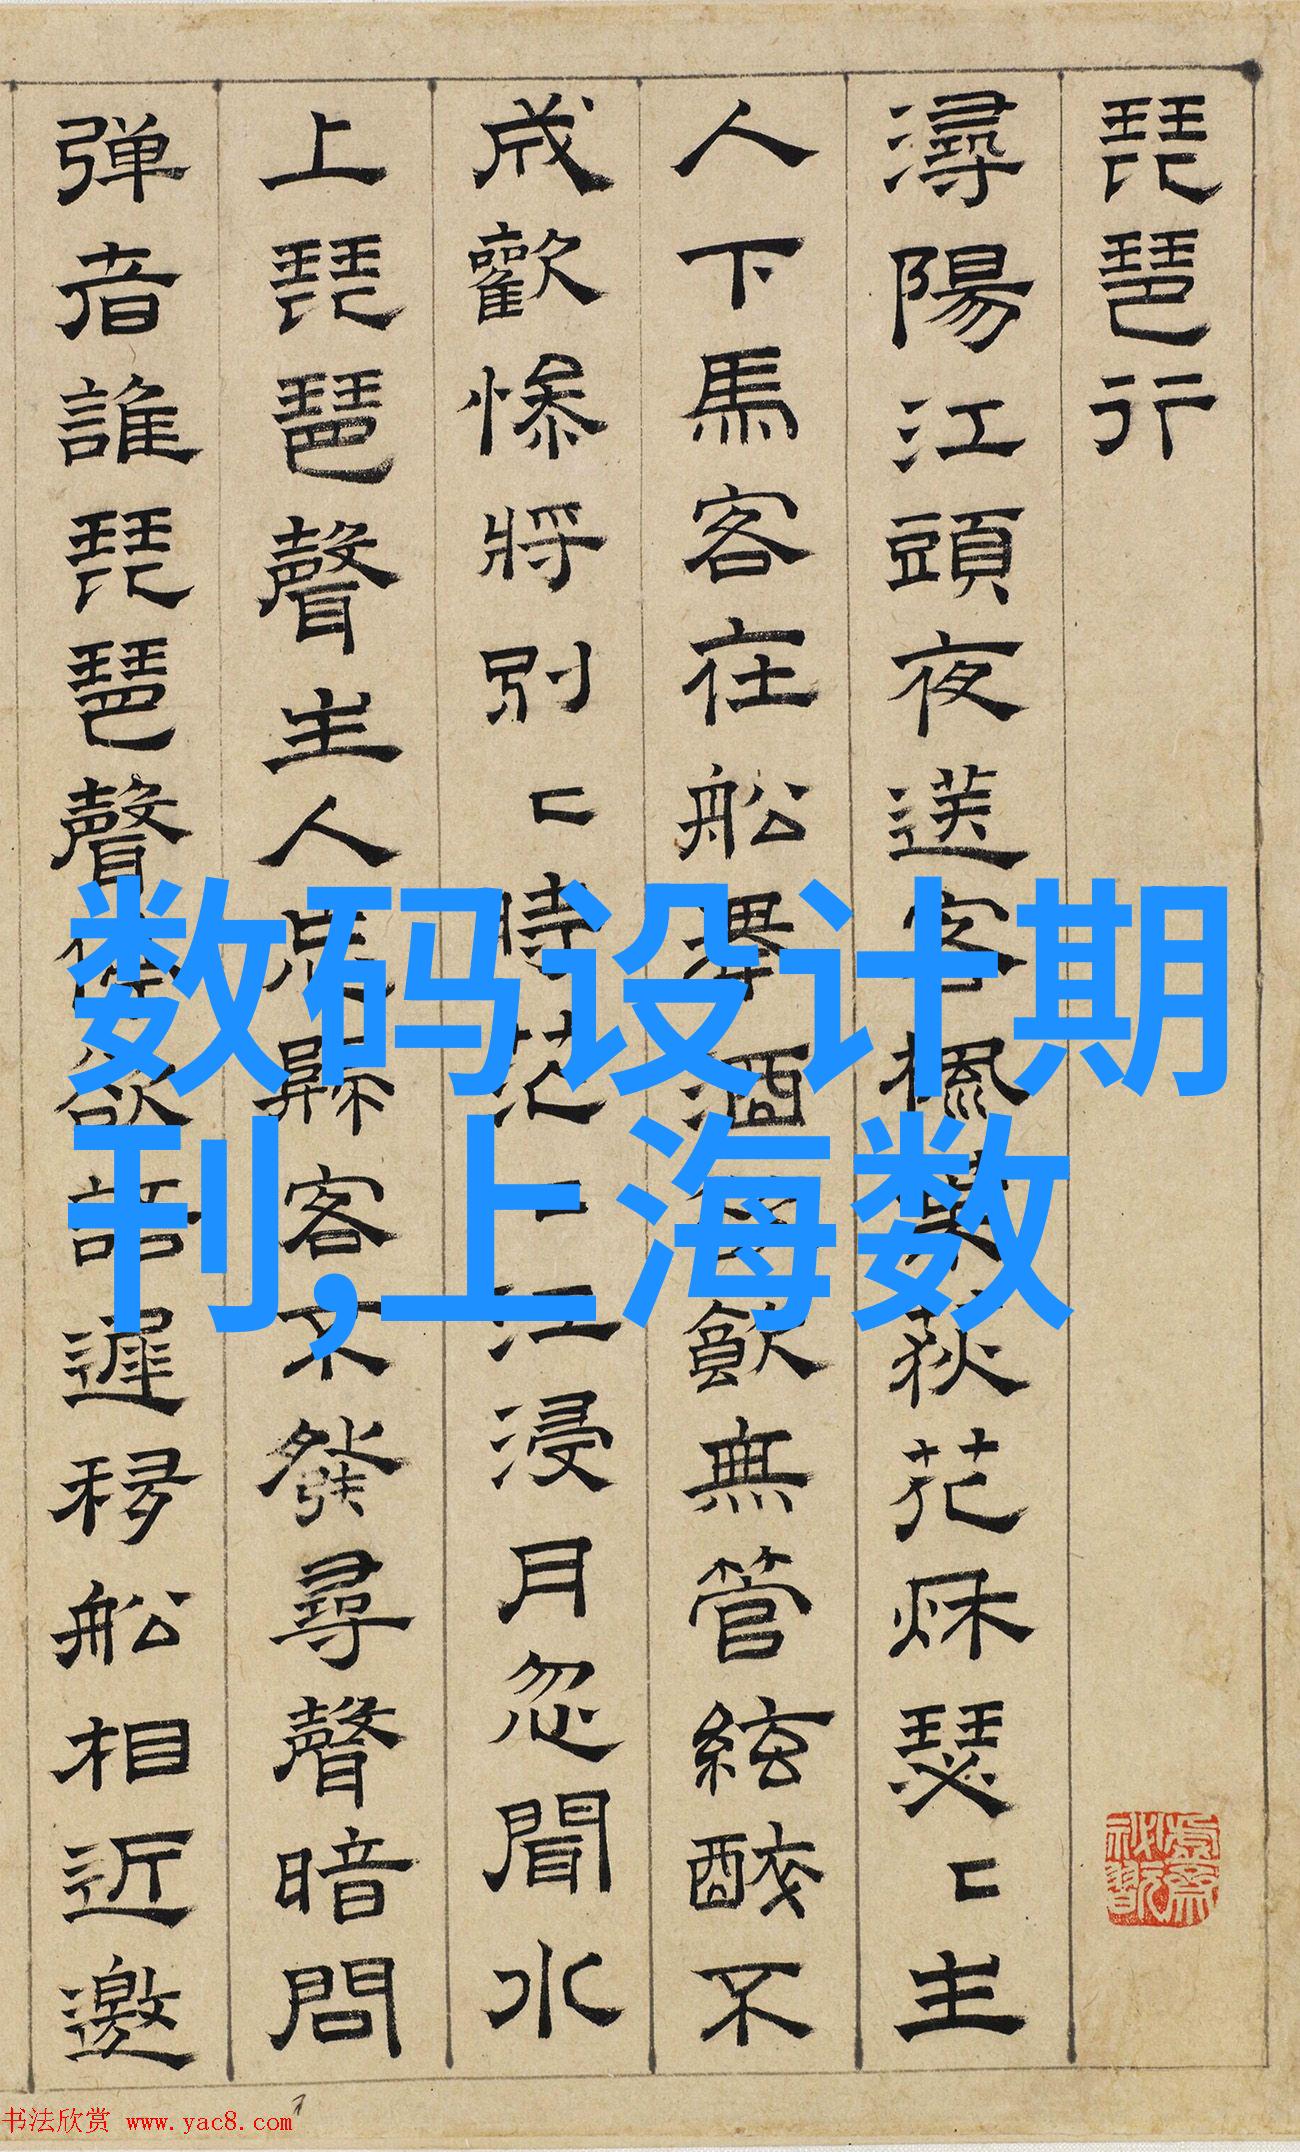 琵琶行
潯陽江頭夜送客楓葉荻花秌瑟〻主
人下馬客在船舉酒欲飲無管絃醉不
成歡慘將別〻時茫〻江浸月忽聞水
上琵琶聲主人忘歸客不發尋聲暗問
彈者誰琵琶聲停欲語遲移船相近邀
数码设计期
刊,上海数
书法欣赏 www.yac8.com